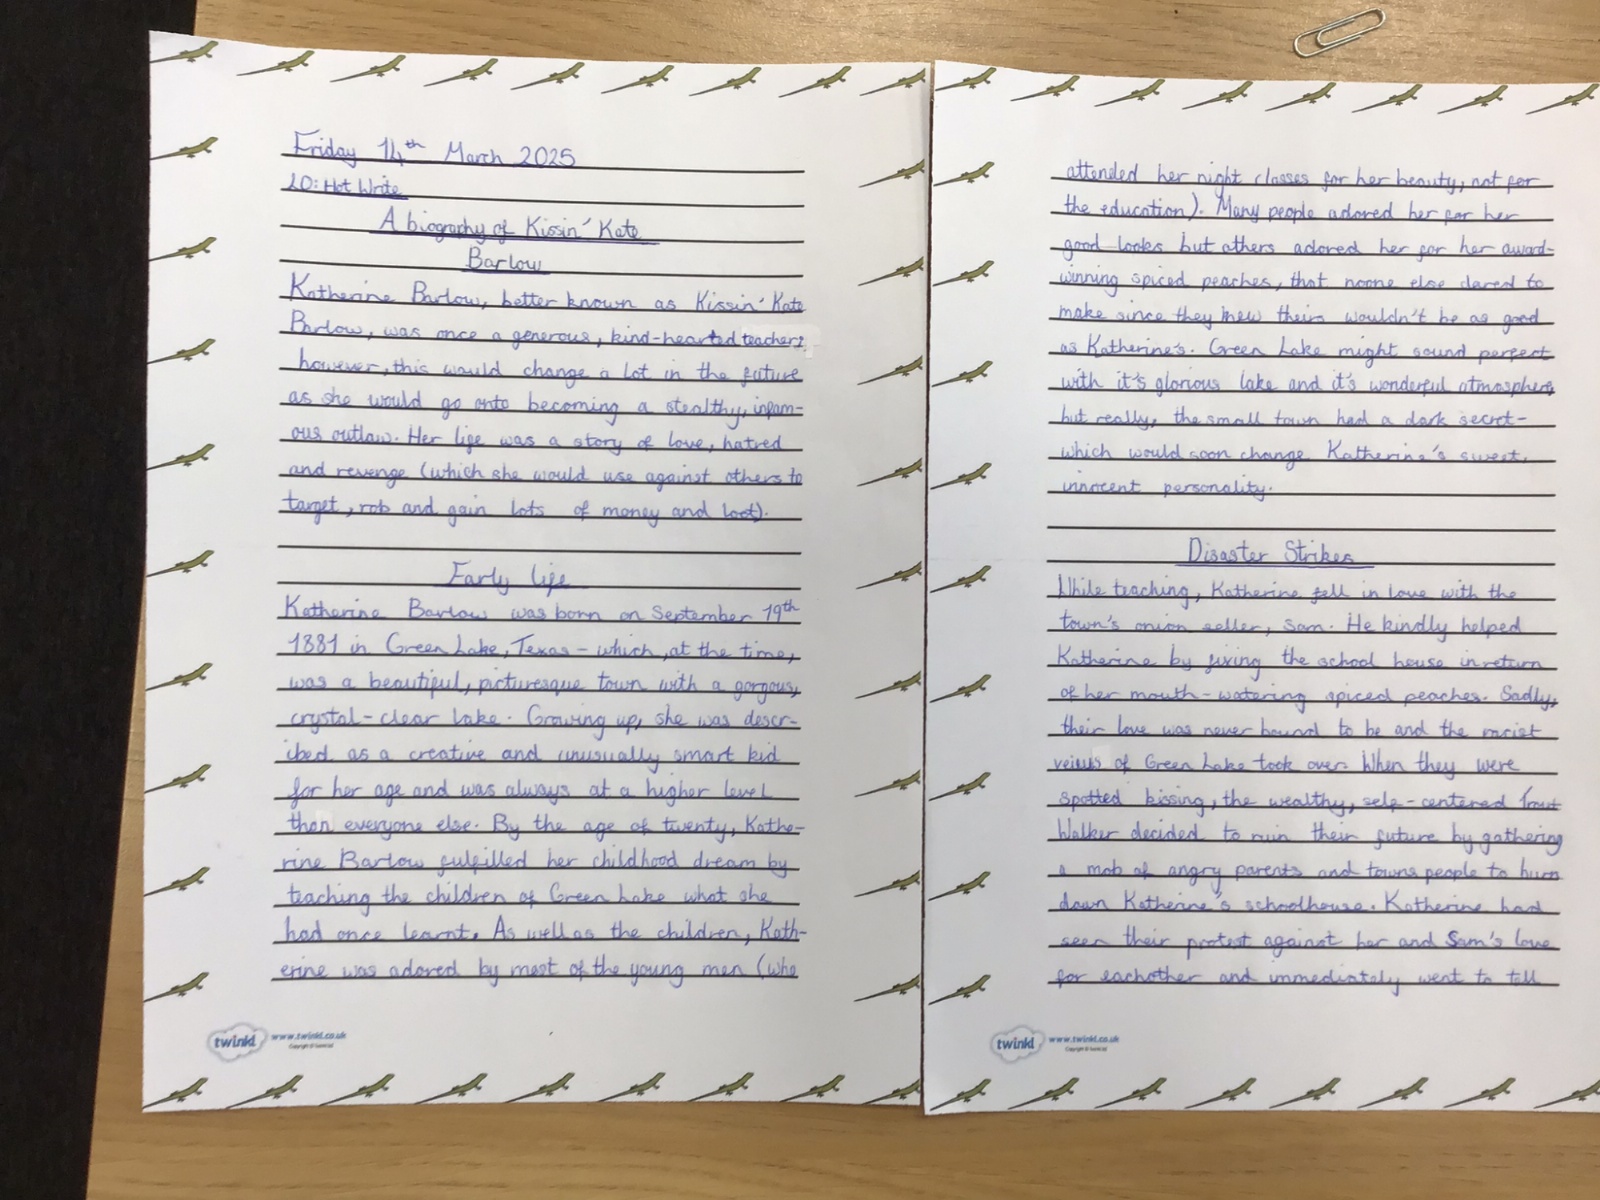 Friday 14th March 2025
LO: Hot Write
A biography of Kissin' Kate
Barlow
Katherine Barlow, better known as Kissin' Kate
Barlow, was once a generous, kind-hearted teacher;
however, this would change a lot in the future
as she would go onto becoming a stealthy, infam-
ous outlaw. Her life was a story of love, hatred
and revenge (which she would use against others to
target, rob and gain lots of money and loot).
Early life
Katherine Barlow was born on September 19th
1881 in Green Lake, Texas - which, at the time,
was a beautiful, picturesque town with a gorgous,
crystal-clear lake. Growing up, she was descr-
ibed as a creative and unusually smart kid
for her age and was always at a higher level
than everyone else. By the age of twenty, Kathe-
rine Barlow fulfilled her childhood dream by
teaching the children of Green Lake what she
had once learnt. As well as the children, Kath-
erine was adored by most of the young men (who
twinkl www.twinkl.co.uk
attended her night classes for her beauty, not for
the education). Many people adored her for her
good looks but others adored her for her award-
winning spiced peaches, that noone else dared to
make since they knew theirs wouldn't be as good
as Katherine's. Green Lake might sound perfect
with it's glorious lake and it's wonderful atmosphere,
but really, the small town had a dark secret-
which would soon change Katherine's sweet,
innocent personality.
Disaster Strikes
While teaching, Katherine fell in love with the
town's onion seller, Sam. He kindly helped
Katherine by fixing the school house in return
of her mouth-watering spiced peaches. Sadly,
their love was never bound to be and the racist
veiws of Green Lake took over. When they were
spotted kissing, the wealthy, self-centered Trout
Walker decided to ruin their future by gathering
a mob of angry parents and towns people to burn
down Katherine's schoolhouse. Katherine had
seen their protest against her and Sam's love
for eachother and immediately went to tell
twinkl www.twinkl.co.uk